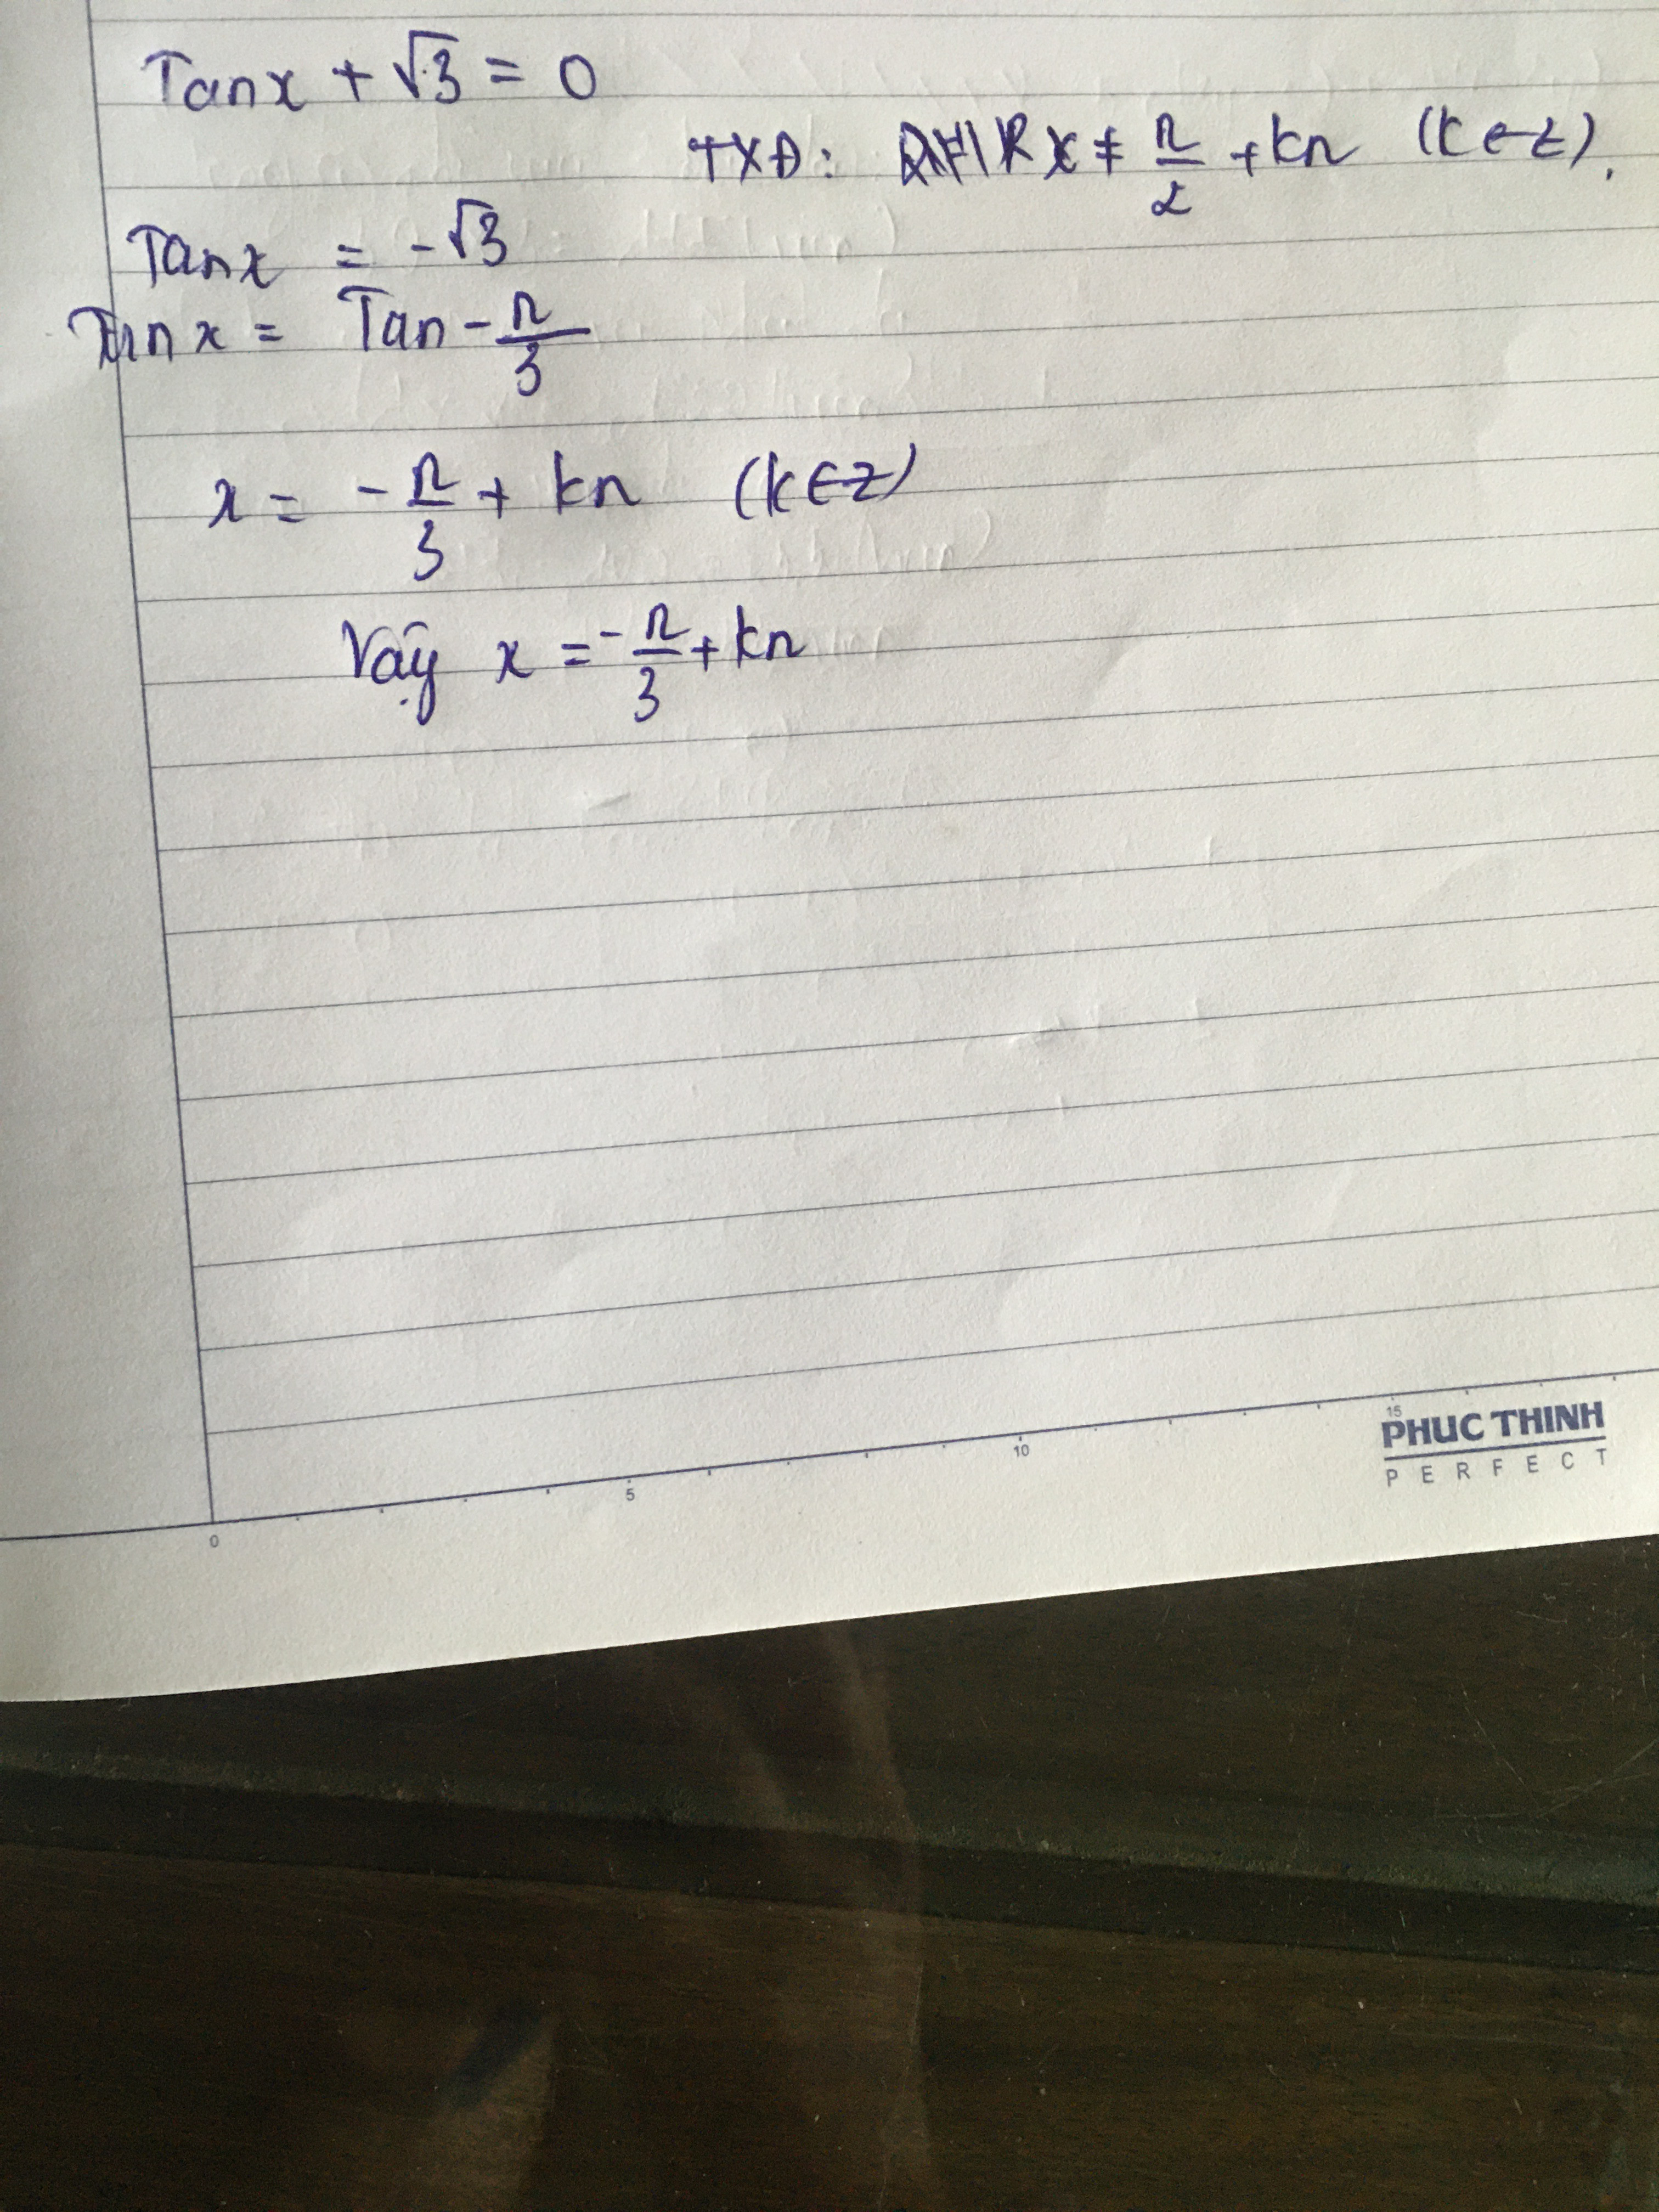 Tanx + √3 = 0
TXĐ: x ≠ π/2 + kπ (k ∈ Z).
Tanx = -√3
Tan x = Tan - π/3
x = - π/3 + kπ (k ∈ Z)
Vậy x = - π/3 + kπ
0 5 10 15
PHUC THINH
PERFECT